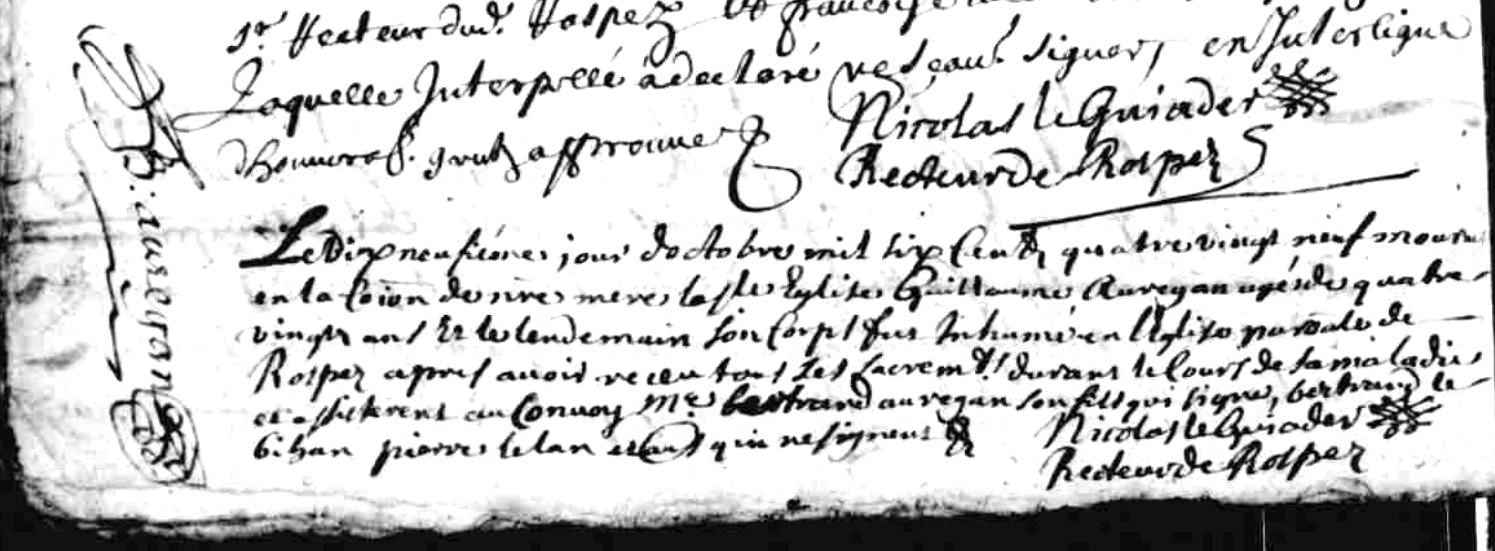 Sr. Recteur dud. Rospez et francoise
Laquelle Interpellé a declaré ne sçauoir signer, en Interligne
approuué
Nicolas le Guiader
Recteur de Rospez
Le Dix neufieme jour doctobre mil six Cents quatre vingt neuf mourut
en la Coion de nre mere la ste Eglise Guillaume Auregan agé de quatre
vingts ans Et le lendemain son Corps fut Inhumé en l'Eglise paroale de
Rospez apres auoir receu tous les sacremts durant le Cours de sa maladie
et assisterent au Conuoy Me bertrand auregan son fils qui signe, bertrand le
bihan pierre lelan et auts qui ne signent
Nicolas le Guiader
Recteur de Rospez
B: auregan